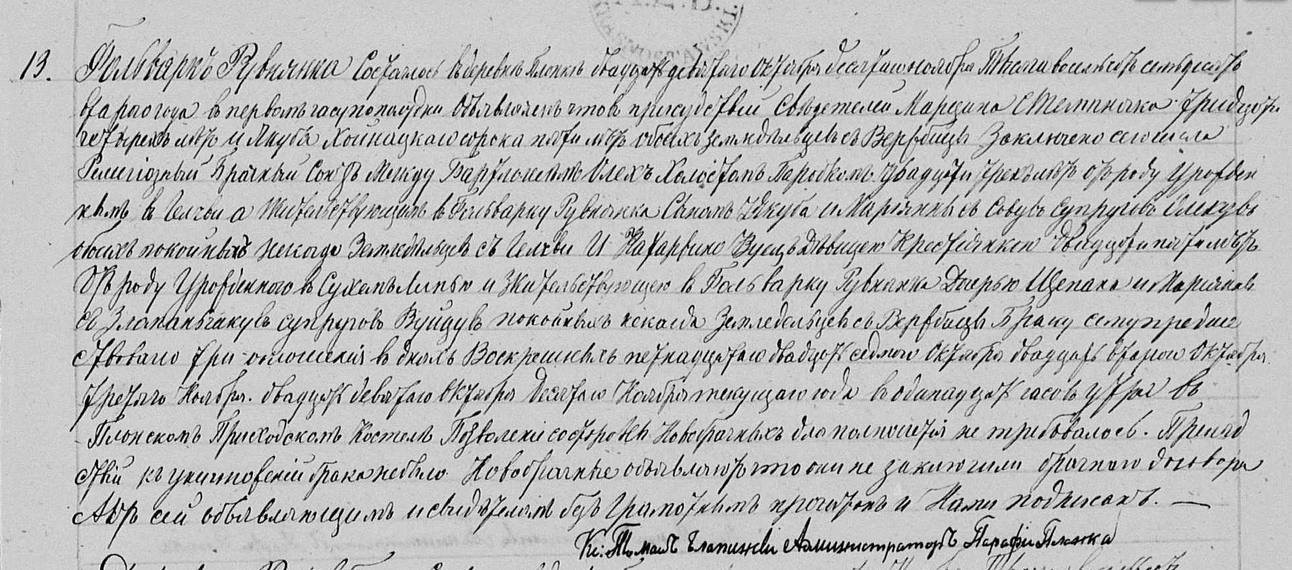 13. Фольваркъ Рувнянка Состоялось въ деревнѣ Плонкѣ двадцать девятаго Октября десятаго Ноября Тысяча восемьсотъ семьдесятъ
втараго года въ первомъ часу пополудни Объявляемъ что въ присудствіи Свидетелей Марцина тридцати
четырехъ лѣтъ и Якуба Хойнацкаго сорока пяти лѣтъ обоихъ земледѣльцевъ съ Вержбицы Заключено сего числа
Религіозный Брачный Союзъ Между Бартломѣемъ Олехъ Холостымъ Паробкомъ Двадцати трехъ лѣтъ отъ роду Урожден
нымъ въ а Жительствующимъ въ Фольварку Рувнянка Сыномъ Якуба и Маріянны съ Супруговъ Олеховъ
обоихъ покойныхъ некогда Земледѣльцевъ съ И Катаржиною Вуйцъ Дѣвицею Крестьянкою двадцати пяти лѣтъ
Отъ роду Урожденного в Сухемъ Липью и Жительствующею в Фольварку Рувнянка Дочерью Щепана и Маріянны
съ супруговъ Вуйцувъ покойныхъ некогда Земледельцевъ съ Вержбицы Браку сему предше
ствовало три оглошенія в дняхъ Воскресныхъ пятнадцатаго двадцать седмого Октября двадцать втарого Октября
третяго Ноября. двадцать девятаго Октября Десятаго Ноября текущаго года в одинадцать часовъ утра въ
Плонскомъ Приходскомъ Костелѣ Позволеніе со стороны Новобрачныхъ для полнолетія не требовалось. Препят
ствій къ уничтоженій брака небыло Новобрачные объявляютъ что они не заключили брачнаго договора
Актъ сей объявляющимъ и свидѣтелямъ безграмотнымъ прочтенъ и Нами подписанъ. —
Кс: Томашъ Администраторъ Парафіи Плонка